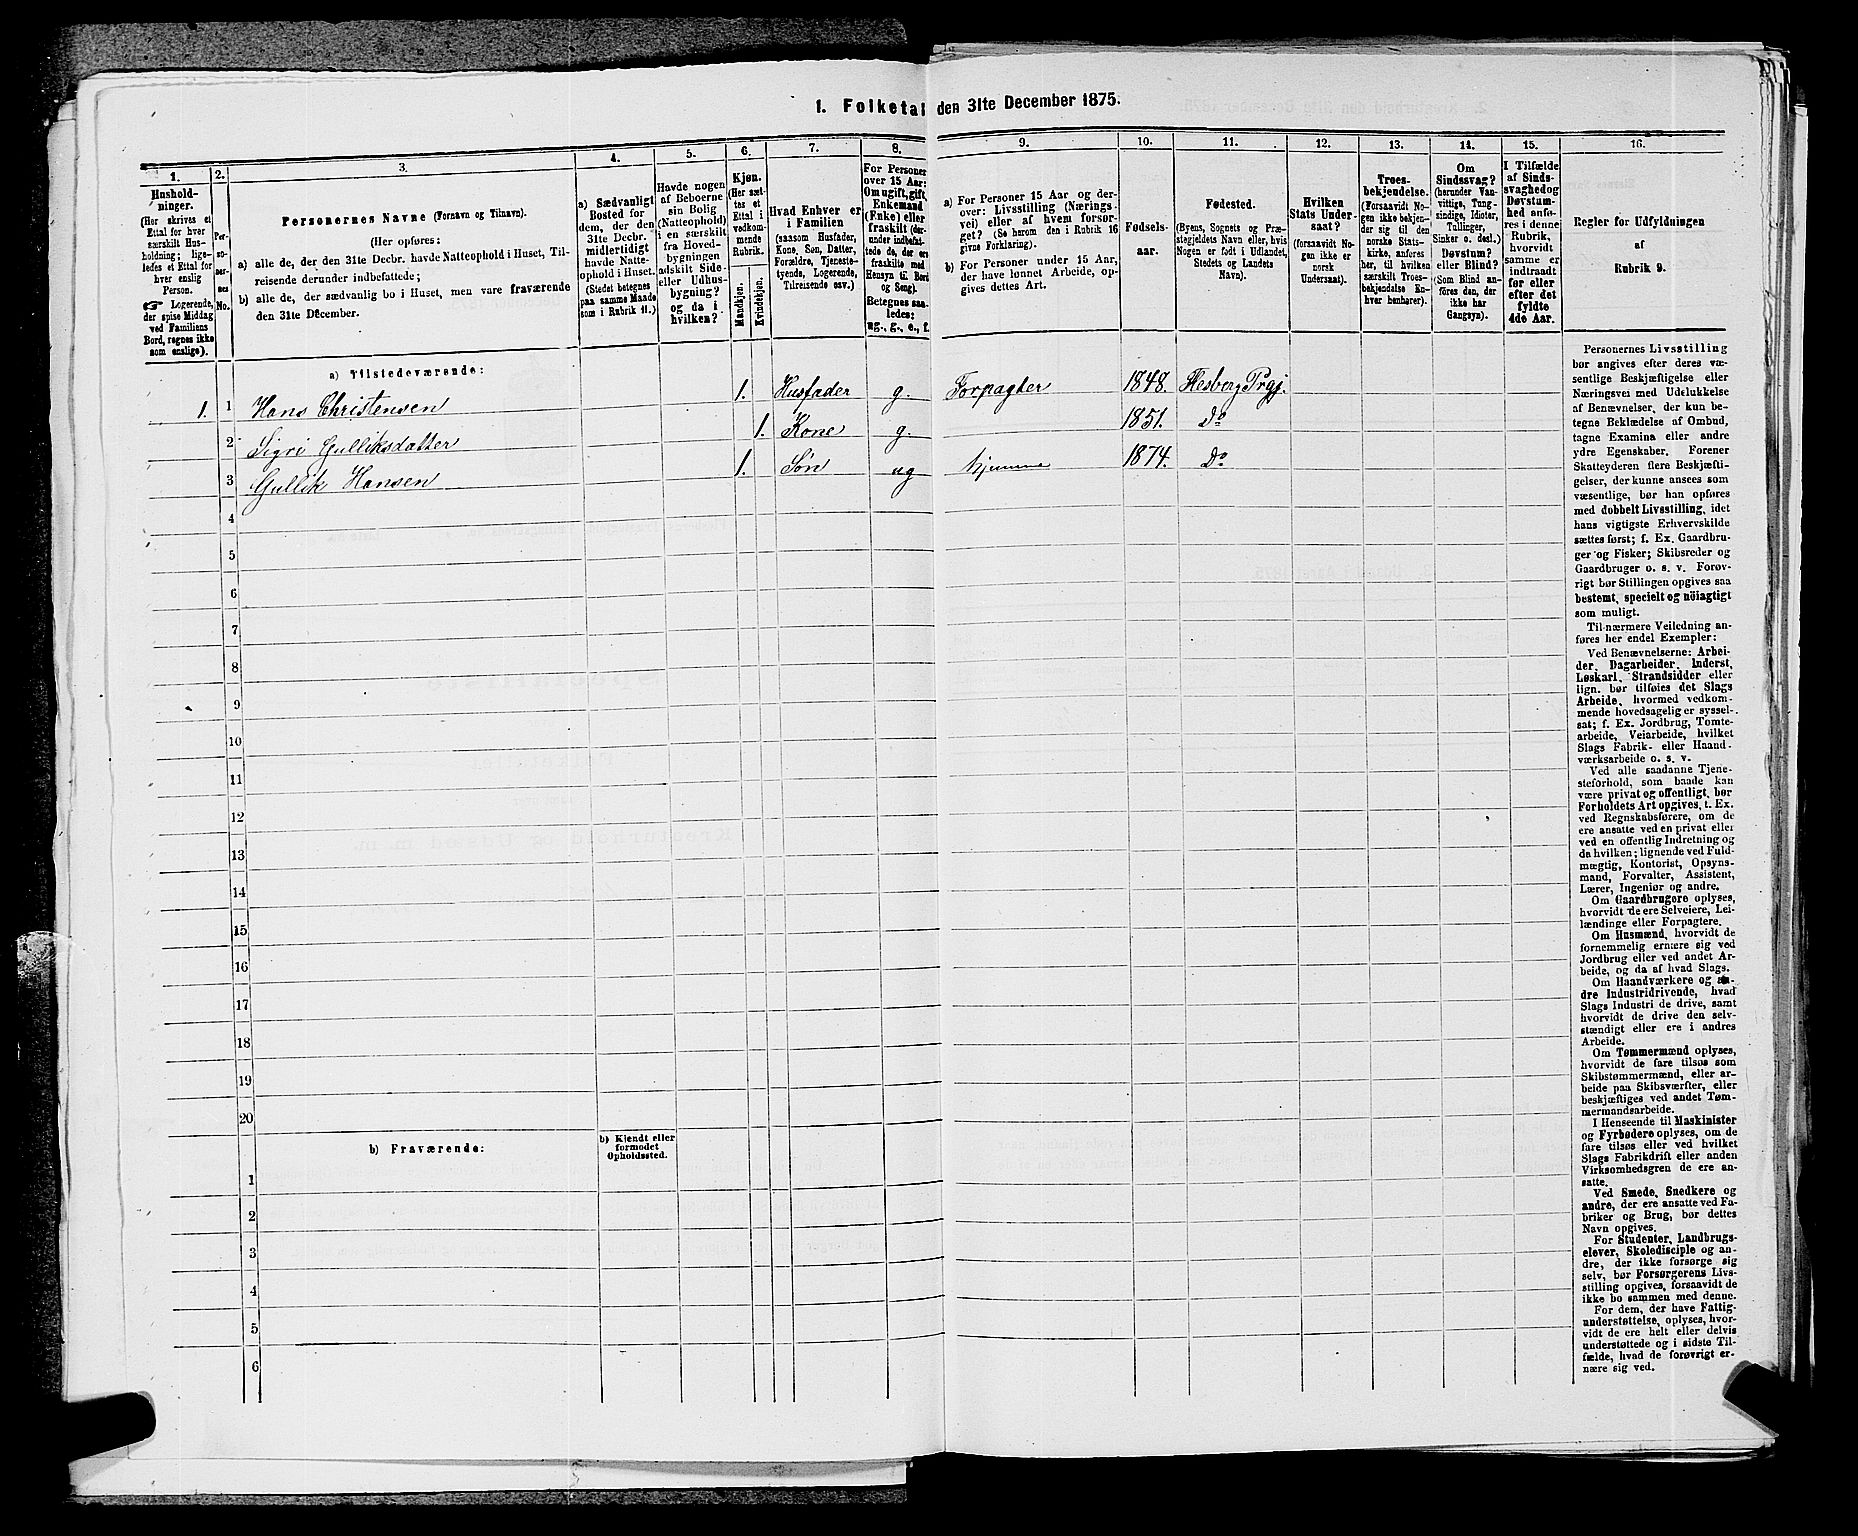 1. Folketal den 31te December 1875.
1.
2.
3.
4.
5.
6.
7.
8.
9.
10.
11.
12.
13.
14.
15.
16.
Hushold-
ninger.
(Her skrives et
Ettal for hver
særskilt Hus-
holdning; lige-
ledes et Ettal for
hver enslig
Person.
☞ Logerende,
der spise Middag
ved Familiens
Bord, regnes ikke
som enslige).
Per-
so-
ner-
nes
No.
Personernes Navne (Fornavn og Tilnavn).
(Her opføres:
a) alle de, der den 31te Decbr. havde Natteophold i Huset, Til-
reisende derunder indbefattede;
b) alle de, der sædvanlig bo i Huset, men vare fraværende
den 31te December.
a) Sædvanligt
Bosted for
dem, der den
31te Decbr.
midlertidigt
havde Natte-
ophold i Huset.
(Stedet betegnes
paa samme Maade
som i Rubrik 11.)
Havde nogen
af Beboerne
sin Bolig
(Natteophold)
i en særskilt
fra Hoved-
bygningen
adskilt Side-
eller Udhus-
bygning?
og da i
hvilken?
Kjøn.
(Her sæt-
tes et
Ettal i
vedkom-
mende
Rubrik.
Mandkjøn.
Kvindekjøn.
Hvad Enhver er
i Familien
(saasom Husfader,
Kone, Søn, Datter,
Forældre, Tjeneste-
tyende, Logerende,
Tilreisende osv.)
For Personer
over 15 Aar:
Om ugift, gift,
Enkemand
(Enke) eller
fraskilt (der-
under indbefat-
tede de, der ere
fraskilte med
Hensyn til Bord
og Seng).
Betegnes saa-
ledes:
ug., g., e., f.
a) For Personer 15 Aar og der-
over: Livsstilling (Nærings-
vei) eller af hvem forsør-
get? (Se herom den i Rubrik 16
givne Forklaring).
b) For Personer under 15 Aar,
der have lønnet Arbeide, op-
gives dettes Art.
Fødsels-
aar.
Fødested.
(Byens, Sognets og Præ-
stegjeldets Navn eller, hvis
Nogen er født i Udlandet,
Stedets og Landets
Navn).
Hvilken
Stats Under-
saat?
(forsaavidt No-
gen ikke er
norsk
Undersaat).
Troes-
bekjendelse.
(Forsaavidt No-
gen ikke bekjen-
der sig til den
norske Stats-
kirke, anføres
her, til hvilken
særskilt Troes-
bekjendelse En-
hver henhører).
Om
Sindssvag?
(herunder Van-
vittige, Tung-
sindige, Idioter,
Tullinger,
Sinker o. desl.)
Døvstum?
eller Blind?
(Som Blind an-
føres den, der
ikke har
Gangsyn).
I Tilfælde
af Sinds-
svaghed og
Døvstum-
hed anfø-
res i denne
Rubrik,
hvorvidt
samme er
indtraadt
før eller
efter det
fyldte
4de Aar.
Regler for Udfyldningen
af
Rubrik 9.
a) Tilstedeværende:
1. 1 Hans Christensen 1. Husfader g. Forpagter 1848. Flesberg Prgj.
2 Sigri Gulliksdatter 1. Kone g. 1851. Do
3 Gullik Hansen 1. Søn ug hjemme 1874. Do
4
5
6
7
8
9
10
11
12
13
14
15
16
17
18
19
20
b) Fraværende:
b) Kjendt eller
formodet
Opholdssted.
1
2
3
4
5
6
Personernes Livsstilling
bør angives efter deres væ-
sentlige Beskjæftigelse eller
Næringsvei med Udelukkelse
af Benævnelser, der kun be-
tegne Beklædelse af Ombud,
tagne Examina eller andre
ydre Egenskaber. Forener
Skatteyderen flere Beskjæfti-
gelser, der kunne ansees som
væsentlige, bør han opføres
med dobbelt Livsstilling, idet
hans vigtigste Erhvervskilde
sættes først; f. Ex. Gaardbru-
ger og Fisker; Skibsreder og
Gaardbruger o. s. v. Forøv-
rigt bør Stillingen opgives saa
bestemt, specielt og nöiagtigt
som muligt.
Til nærmere Veiledning an-
føres her endel Exempler:
Ved Benævnelserne: Arbei-
der, Dagarbeider, Inderst,
Løskarl, Strandsidder eller
lign. bør tilføies det Slags
Arbeide, hvormed vedkom-
mende hovedsagelig er syssel-
sat; f. Ex. Jordbrug, Tomte-
arbeide, Veiarbeide, hvilket
Slags Fabrik- eller Haand-
værksarbeide o. s. v.
Ved alle saadanne Tjene-
steforhold, som baade kan
være privat og offentligt, bør
Forholdets Art opgives, t. Ex.
ved Regnskabsførere, om de
ere ansatte ved en privat eller
ved en offentlig Indretning og
da hvilken; lignende ved Fuld-
mægtig, Kontorist, Opsyns-
mand, Forvalter, Assistent,
Lærer, Ingeniør og andre.
Om Gaardbrugere oplyses,
hvorvidt de ere Selveiere, Lei-
lændinge eller Forpagtere.
Om Husmænd, hvorvidt de
fornemmelig ernære sig ved
Jordbrug eller ved andet Ar-
beide, og da af hvad Slags.
Om Haandværkere og an-
dre Industridrivende, hvad
Slags Industri de drive, samt
hvorvidt de drive den selv-
stændigt eller ere i andres
Arbeide.
Om Tømmermænd oplyses,
hvorvidt de fare tilsøs som
Skibstømmermænd, eller ar-
beide paa Skibsværfter, eller
beskjæftiges ved andet Tøm-
mermandsarbeide.
I Henseende til Maskinister
og Fyrbødere oplyses, om de
fare tilsøs eller ved hvilket
Slags Fabrikdrift eller anden
Virksomhedsgren de ere an-
satte.
Ved Smede, Snedkere og
andre, der ere ansatte ved Fa-
briker og Brug, bør dettes
Navn opgives.
For Studenter, Landbrugs-
elever, Skoledisciple og an-
dre, der ikke forsørge sig
selv, bør Forsørgerens Livs-
stilling opgives, forsaavidt de
ikke bo sammen med denne.
For dem, der have Fattig-
understøttelse, oplyses, hvor-
vidt de ere helt eller delvis
understøttede og i sidste Til-
fælde, hvad de forøvrigt er-
nære sig ved.